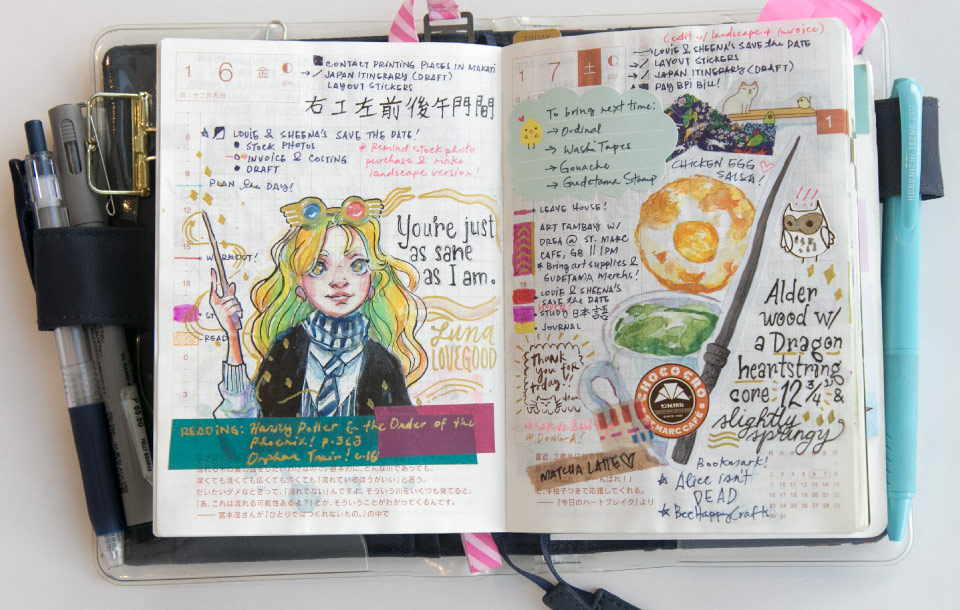 1
6
金
CONTACT PRINTING PLACES IN MAKATI
JAPAN ITINERARY (DRAFT)
LAYOUT STICKERS
右工左前後午門間
LOUIE & SHEENA'S SAVE THE DATE!
STOCK PHOTOS
INVOICE & COSTING
DRAFT
* Remind stock photo
purchase & make
landscape version!
PLAN the DAY!
You're just
as sane
as I am.
Luna
LOVEGOOD
READ
READING: Harry Potter & the Order of the
Phoenix! p. 363
Orphan Train! c.18
深くても浅くても広くても汚くても「流れているほうがいい」と思う。
だいたいダメなときって、「流れてない」んですよ。そういう川をいくつも見てると、
「あ、これは流れる可能性あるよ?」とか、そういうことがわかってくるんです。
── 宮本茂さんが『ひとりではつくれないもの。』の中で
TODAY
1
7
土
(edit w/ landscape + invoice)
LOUIE & SHEENA'S SAVE the DATE
LAYOUT STICKERS
JAPAN ITINERARY (DRAFT)
PAY BPI BILL!
1
To bring next time:
→ Ordinal
→ Washi Tapes
→ Gouache
→ Gudetama Stamp
CHICKEN EGG
SALSA!
LEAVE HOUSE!
ART TAMBAY W/
DREA @ ST. MARC
CAFE, GB || 1PM
* Bring art supplies &
GUDETAMA Merchs!
LOUIE & SHEENA'S
SAVE the DATE
STUDY 日本語
JOURNAL
Thank
you for
today!
CHOCOCRO
ST.MARC CAFÉ
MATCHA LATTE
Alder
wood w/
a Dragon
heartstring
core 12 3/4 &
slightly
springy
Bookmark!
★ Alice isn't
DEAD
★ BeeHappyCrafts
と、牛柏子つきで応援してくれる。
──『今日のハートブレイク』より